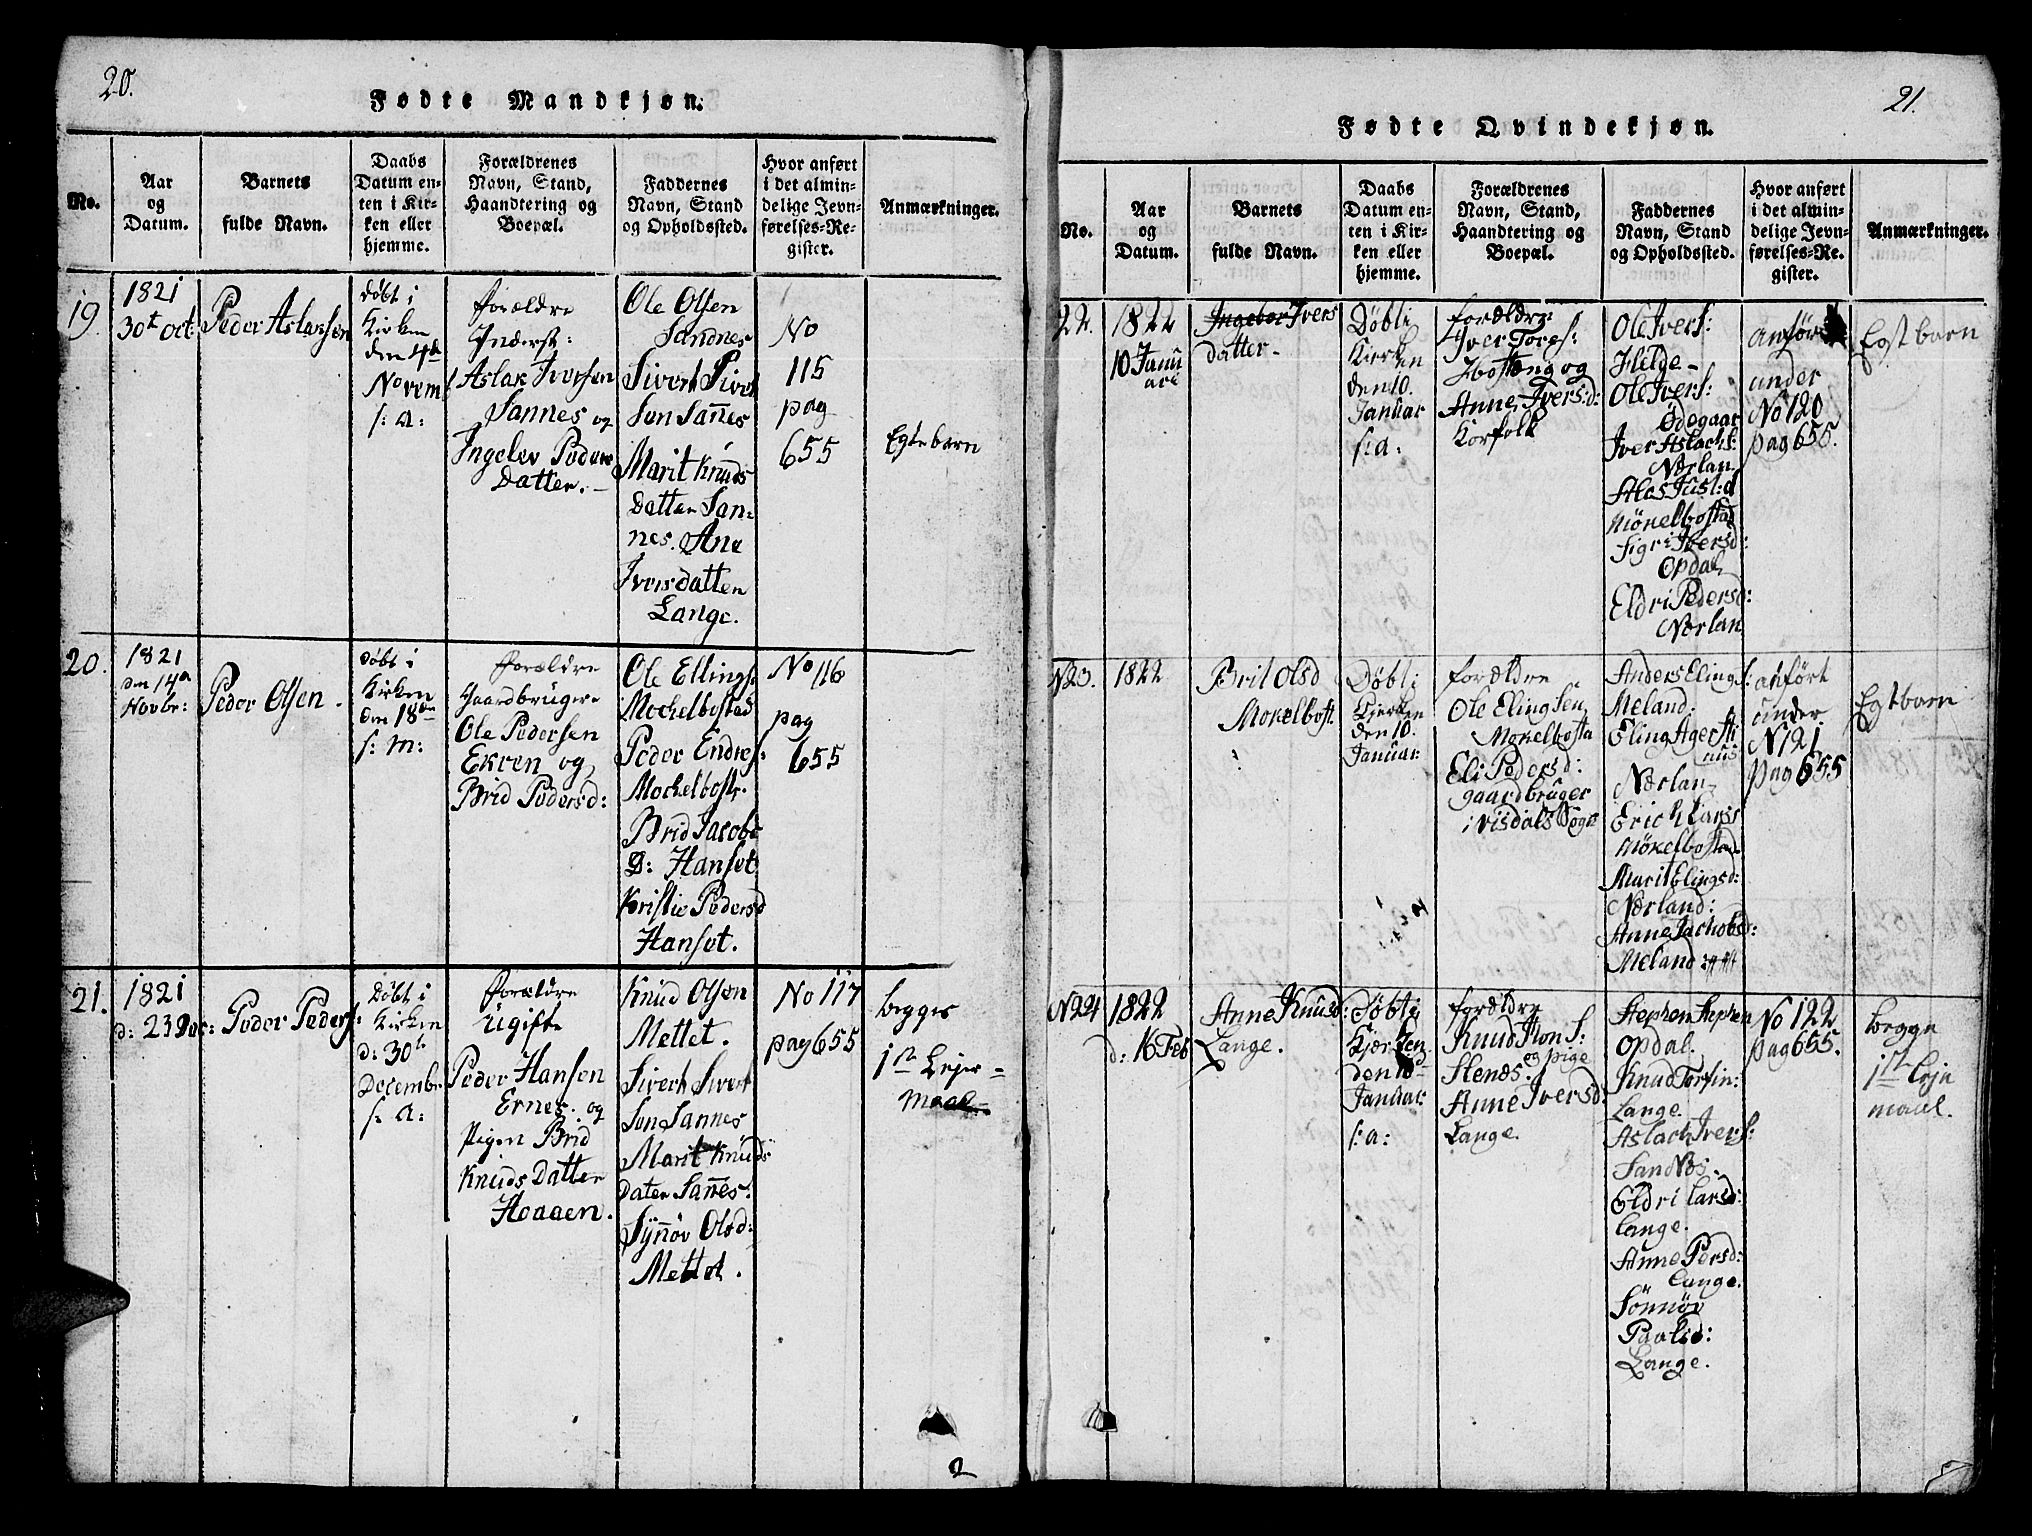 20.
Fødte Mandkjøn.
No.
Aar
og
Datum.
Barnets
fulde Navn.
Daabs
Datum en-
ten i Kir-
ken eller
hjemme.
Forældrenes
Navn, Stand,
Haandtering og
Boepæl.
Faddernes
Navn, Stand
og Opholdssted.
Hvor anført
i det almin-
delige Jevn-
førelses-Re-
gister.
Anmærkninger.
19.
1821
30t Oct:
Peder Aslaksen
Døbt i
Kirken
den 4de
Novemb
s: a:
Forældre
Inderst:
Aslak Iversen
Sannes og
Ingelev Peders
Datter.
Ole Olsen
Sandnes
Sivert Sivert
Søn Sañes
Marit Knuds
Datter San-
nes. Ane
Iversdatter
Lange.
No
115
pag
655
Egtebarn
20.
1821
den 14de
Novbr:
Peder Olsen.
Døbt i
Kirken
den 18de
s: m:
Forældre
Gaardbrugere
Ole Pedersen
Ekren og
Brid Pedersd:
Ole Ellings:
Mockelbostad
Peder Endres:
Mockelbost:
Brid Jacobs
D: Hanset
Kristie Pedersd
Hanset.
No 116
pag
655
21.
1821
d: 23 Dec:
Peder Peders:
Døbt i
Kirken
d: 30te
Decembr
s: A:
Forældre
Ugifte
Peder Hansen
Ernes. og
Pigen Brid
Knuds Datter
Hoaaen.
Knud Olsen
Mettet.
Sivert Sivert
Søn Sannes
Marit Knuds
Dater Sañes:
Syñøv Olsd:
Mettet.
No 117
pag 655
begges
1ste Lejer-
maal.
2
21.
Fødte Qvindekjøn.
No.
Aar
og
Datum.
Barnets
fulde Navn.
Daabs
Datum en-
ten i Kir-
ken eller
hjemme.
Forældrenes
Navn, Stand,
Haandtering og
Boepæl.
Faddernes
Navn, Stand
og Opholdssted.
Hvor anført
i det almin-
delige Jevn-
førelses-Re-
gister.
Anmærkninger.
22.
1822
10 Janu
ari
Ingebor Ivers
datter-
Døbt i
Kirken
den 10.
Januar
s: a:
forældre
Iver Tores:
og
Anne Ivers:d:
Korfolk
Ole Ivers:
Helde-
Ole Ivers:
Ødegaar
Iver Aslachs:
Nørlan
Mökelbostad
Sigri Iversd:
Opdal
Eldri Pedersd:
Nørlan
anført
under
No 120
pag 655.
Egtbarn
N23.
1822
Brit Olsd
Mökelbost.
Døbt i
Kjerken
den 10.
Januar:
forældre
Ole Elingsen
Mökelbosta
Eli Pedersd:
gaardbruger
i Visdals Sogn
Anders Elings:
Meland.
Eling
Nørlan
Erich Lars
Mökelbostad
Marit Elingsd:
Nørland:
Anne Jachobsd:
Meland
anført
under
N 121
pag 655
Egtbarn
N24
1822
d: 16 Feb
Anne Knusd:
Lange.
Døbt i
Kjerken
den 10
Januar:
s: a:
forældre
Knud
Stenes. og pige
Anne Iversd:
Lange.
Stephen Stephen
Opdal.
Knud Torfin:
Lange.
Aslach Ivers:
Sandnes.
Eldri Larsd:
Lange.
Anne Persd:
Lange.
Sönnöv
Paalsd:
Lange.
No 122
pag 655.
begge
1ste Leje
maal.